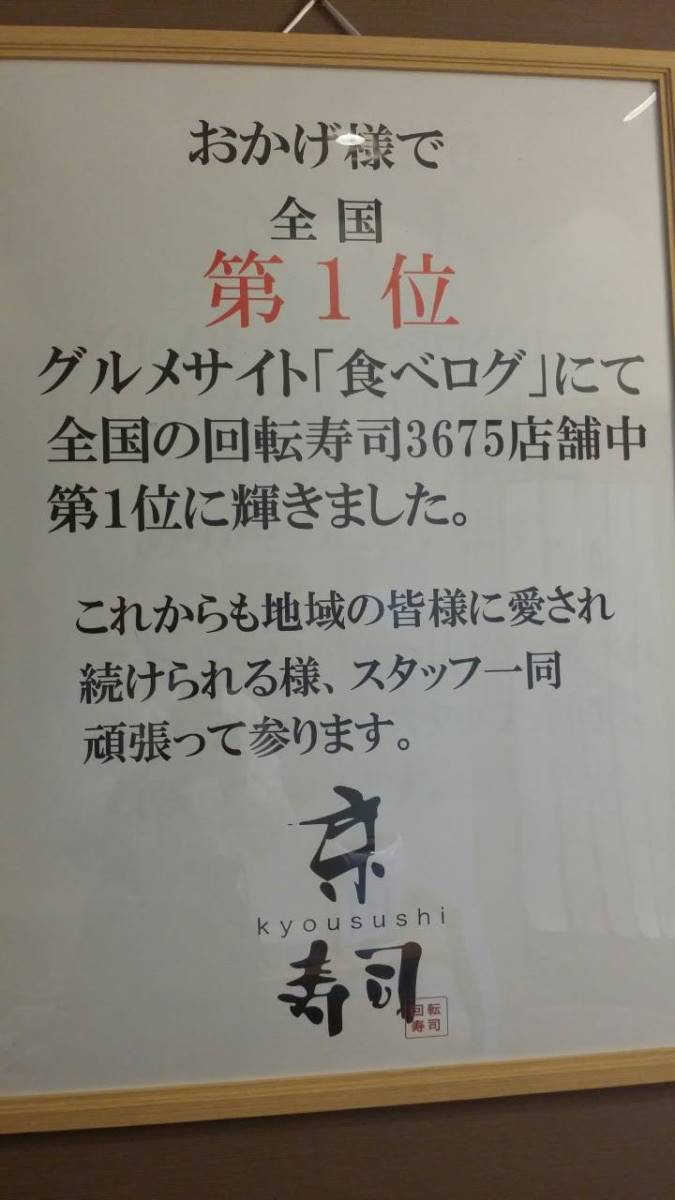 おかげ様で
全国
第１位
グルメサイト「食べログ」にて
全国の回転寿司3675店舗中
第1位に輝きました。
これからも地域の皆様に愛され
続けられる様、スタッフ一同
頑張って参ります。
京
kyousushi
寿司
回転
寿司